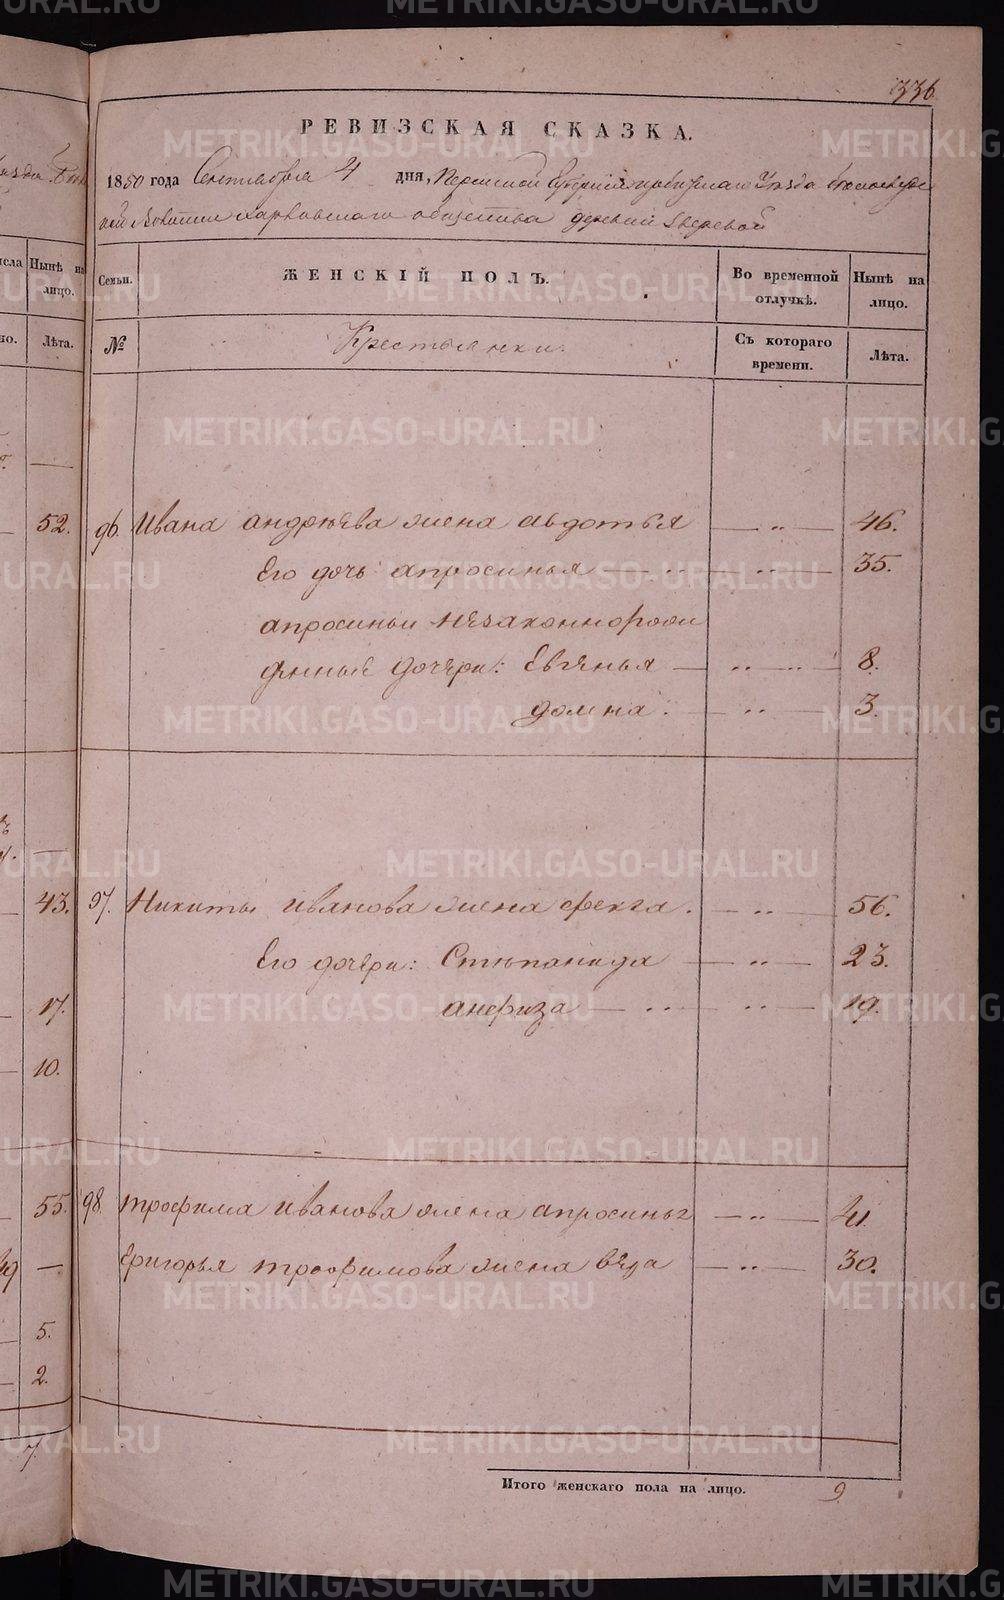 336
РЕВИЗСКАЯ СКАЗКА.
1850 года Сентября 4 дня, Пермской Губернии Ирбитскаго Уезда Белослудс
кой Волости Харловскаго общества деревни Зверевой
Семьи.
ЖЕНСКІЙ ПОЛЪ.
Во временной отлучкѣ.
Нынѣ на лицо.
№
Крестьянки.
Съ котораго времени.
Лѣта.
96. Ивана андреева жена авдотья — „ — 46.
Его дочь апросинья — „ — 35.
апросиньи незаконнорож
денные дочери: Евгенья — „ — 8.
домна. — „ — 3.
97. Никиты иванова жена фекла. — „ — 56.
Его дочери: Степанида — „ — 23.
анфиза — „ — 19.
98. трофима иванова жена апросинья — „ — 41.
Григорья трофимова жена вера — „ — 30.
Итого женскаго пола на лицо. 9
Нынѣ на лицо.
Лѣта.
52.
43.
17.
10.
55.
49 —
5.
2.
7.
METRIKI.GASO-URAL.RU